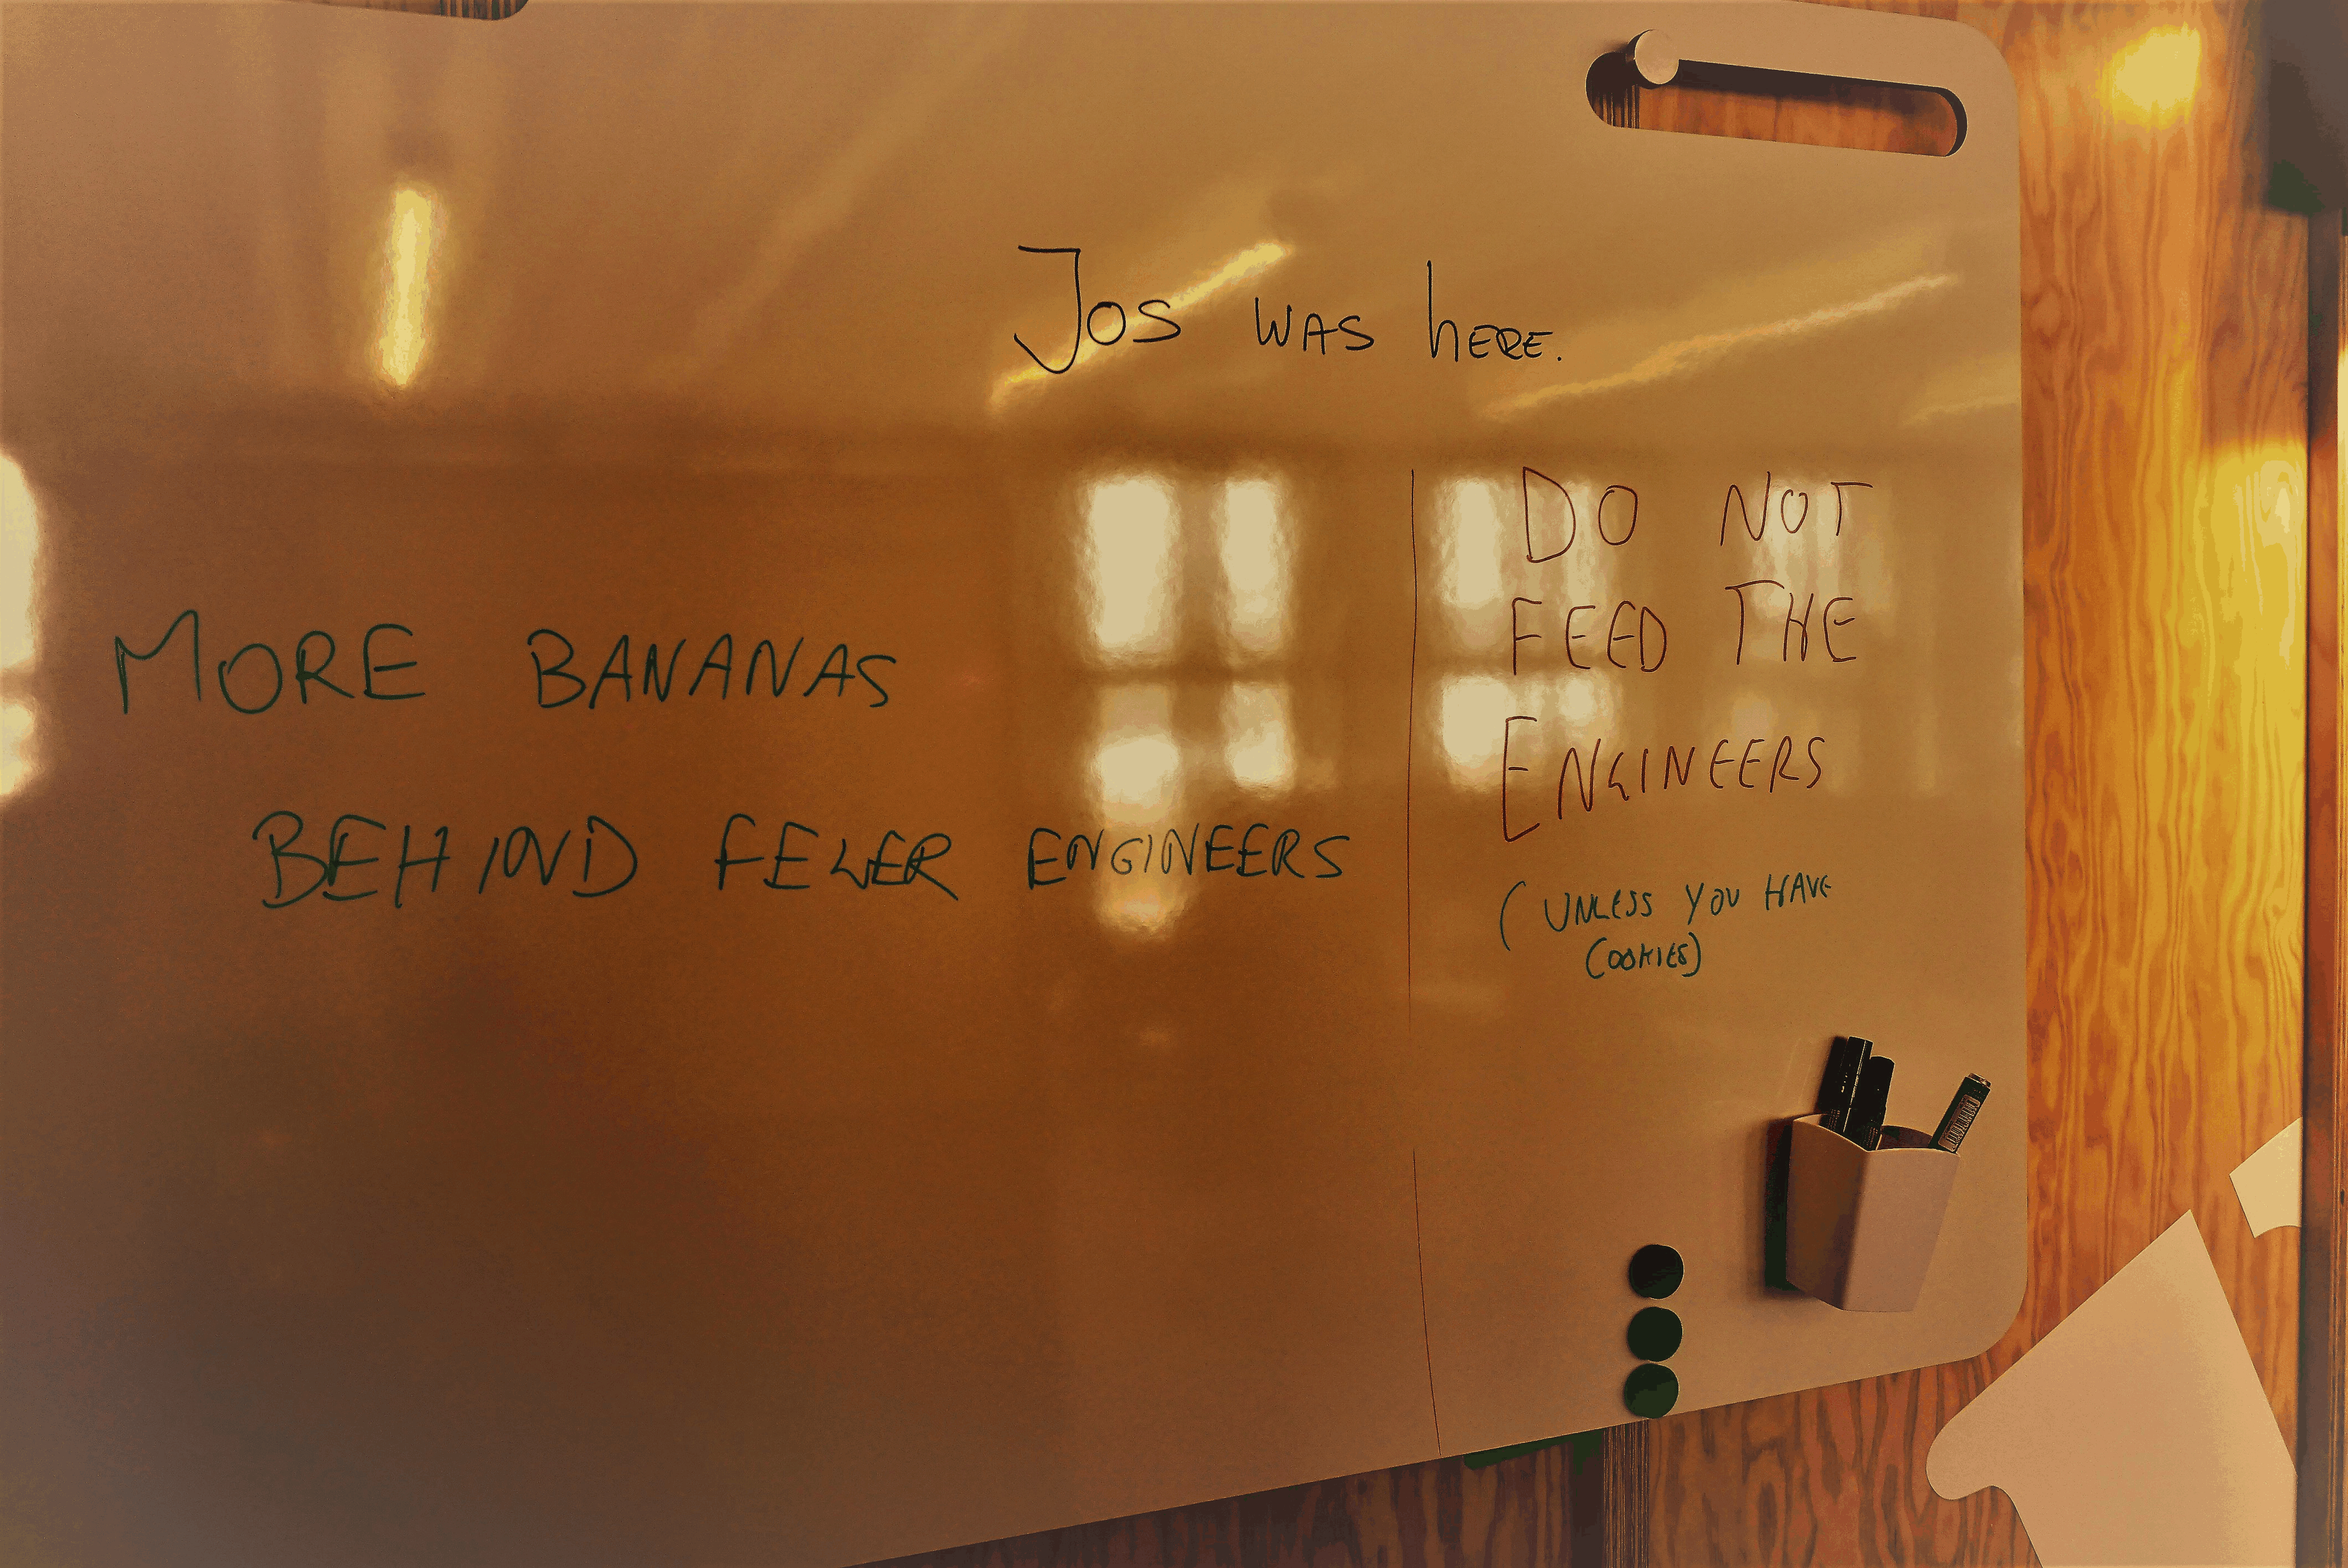 Jos WAS hERE.
MORE BANANAS
BEHIND FEWER ENGINEERS
DO NOT
FEED THE
ENGINEERS
(UNLESS YOU HAVE
COOKIES)